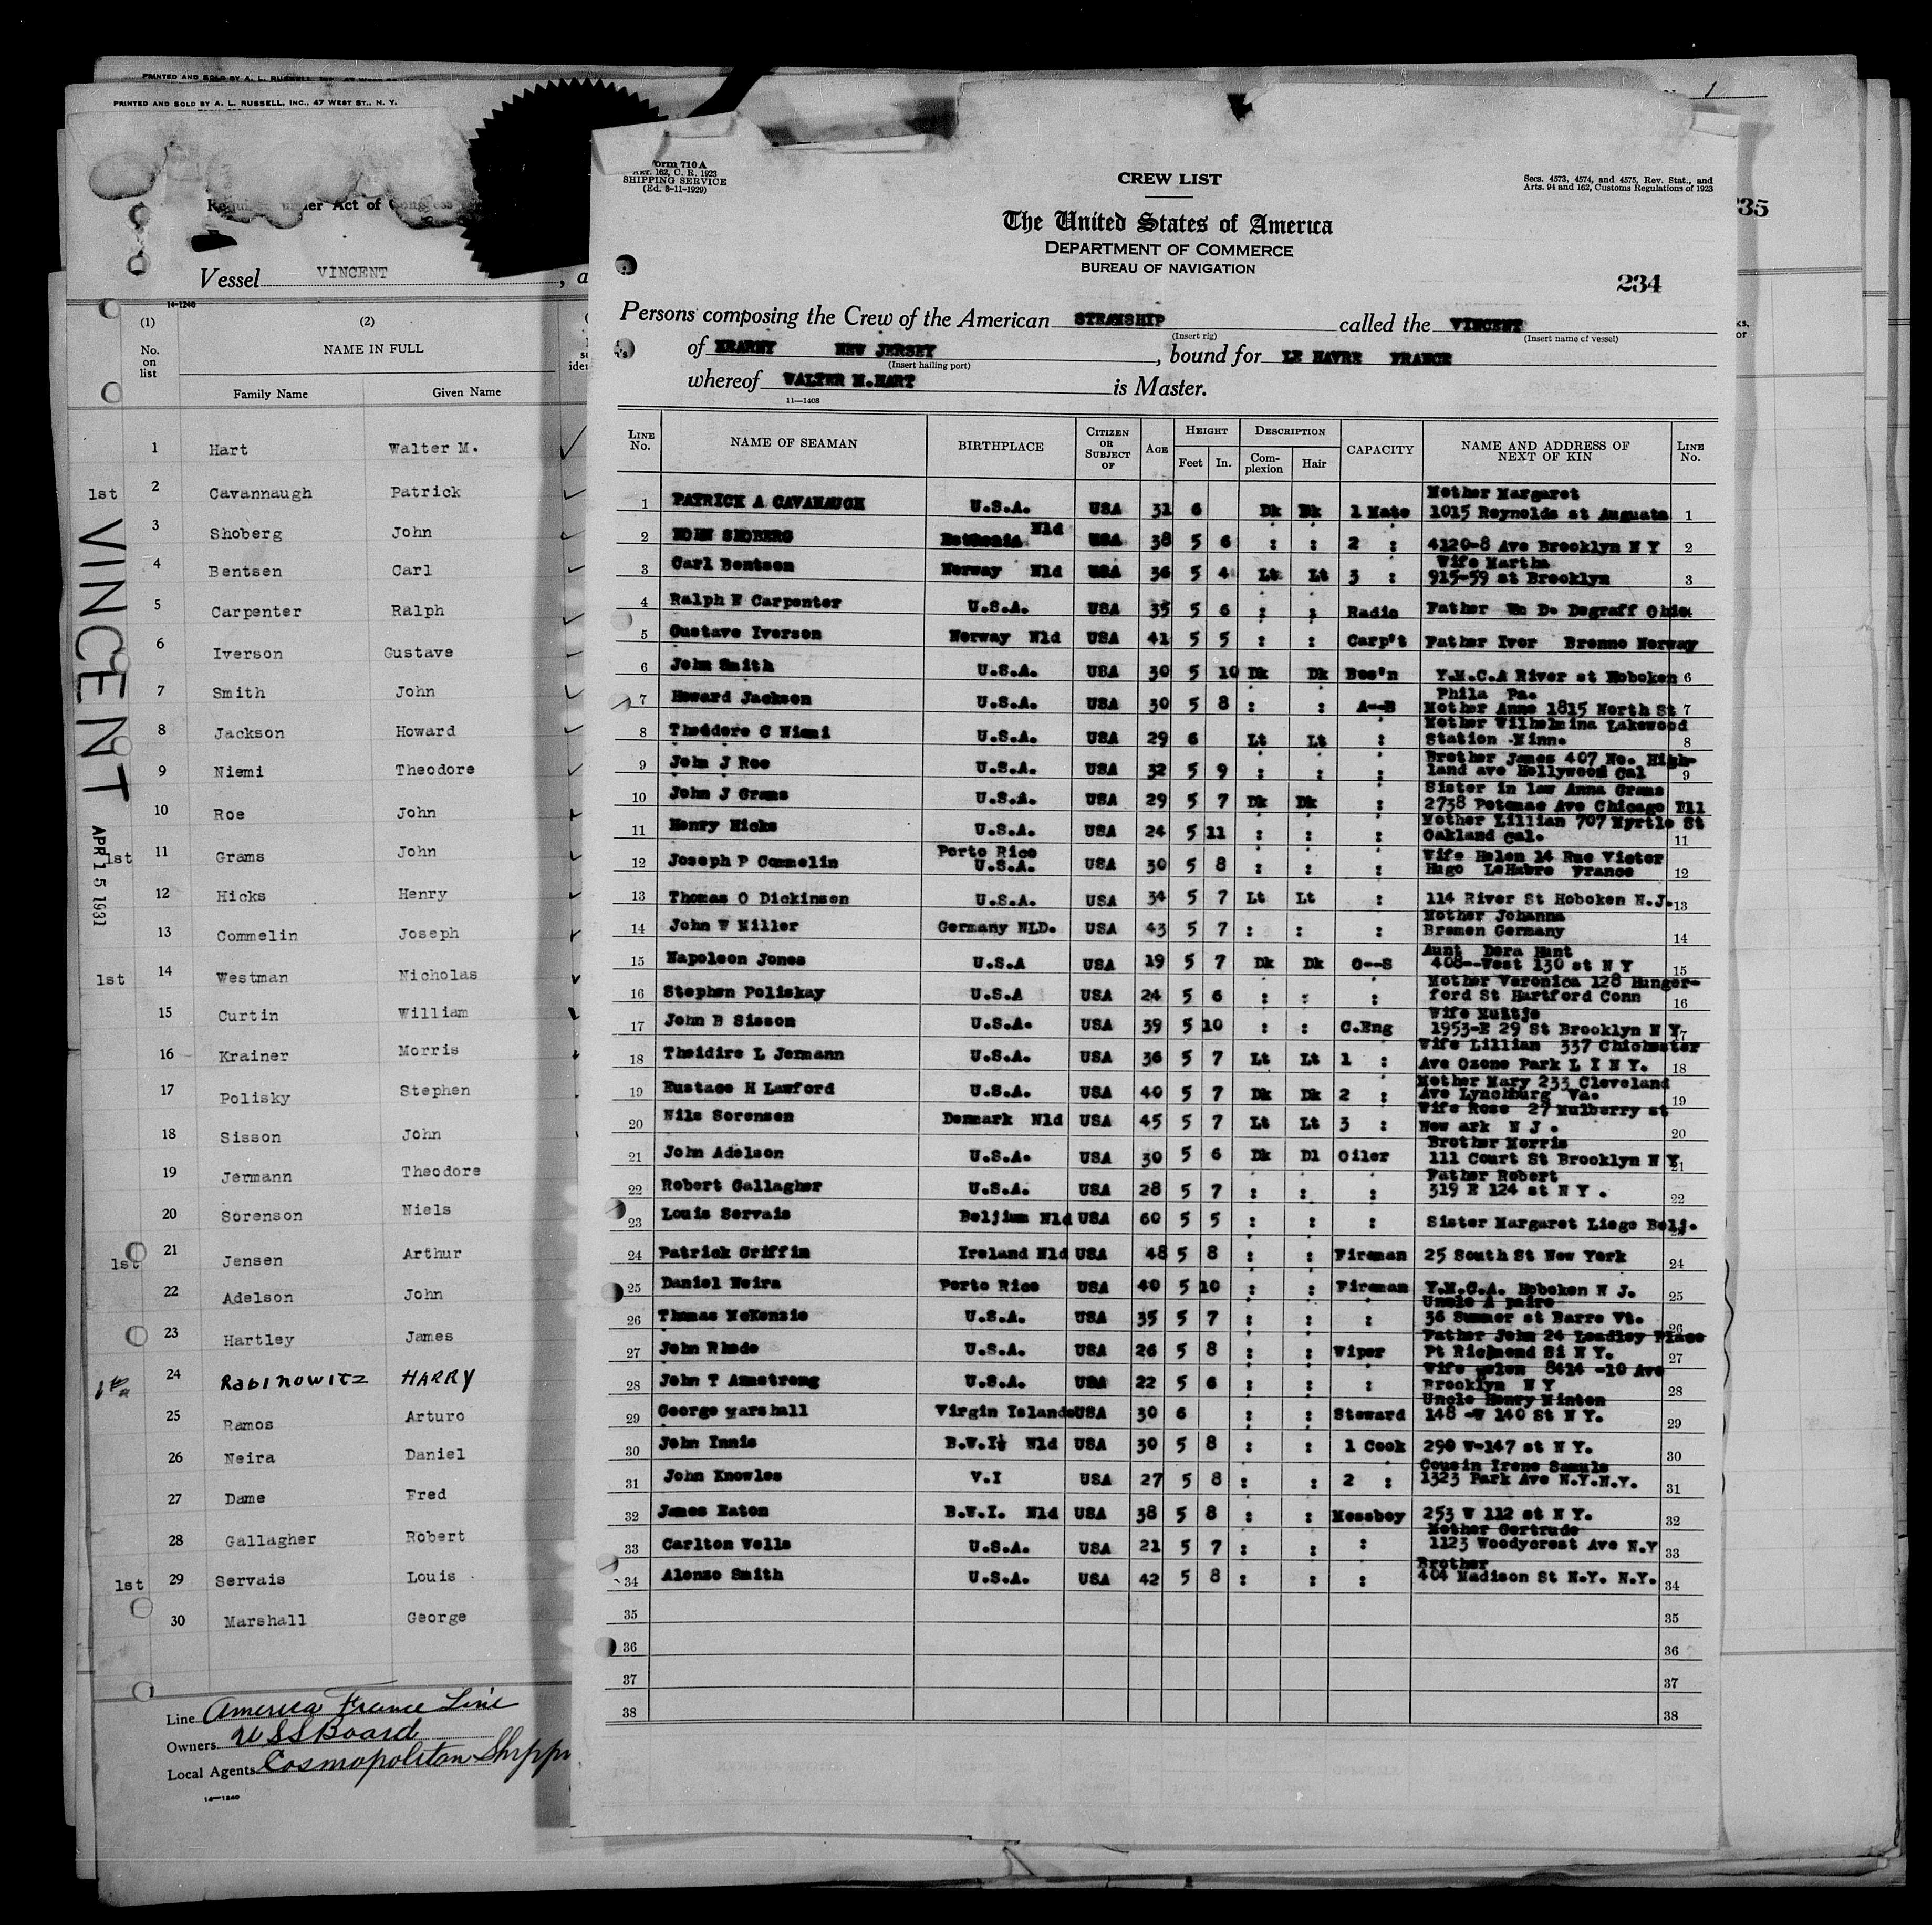 PRINTED AND SOLD BY A. L. RUSSELL, INC.
PRINTED AND SOLD BY A. L. RUSSELL, INC., 47 WEST ST., N. Y.
Act of Congress
Vessel VINCENT, a
14-1240
(1) (2)
No. on list
NAME IN FULL
Family Name Given Name
1 Hart Walter M.
1st 2 Cavannaugh Patrick
3 Shoberg John
4 Bentsen Carl
5 Carpenter Ralph
6 Iverson Gustave
7 Smith John
8 Jackson Howard
9 Niemi Theodore
10 Roe John
1st 11 Grams John
12 Hicks Henry
13 Commelin Joseph
1st 14 Westman Nicholas
15 Curtin William
16 Krainer Morris
17 Polisky Stephen
18 Sisson John
19 Jermann Theodore
20 Sorenson Niels
1st 21 Jensen Arthur
22 Adelson John
23 Hartley James
24 RabiNowitz HARRY
25 Ramos Arturo
26 Neira Daniel
27 Dame Fred
28 Gallagher Robert
1st 29 Servais Louis
30 Marshall George
VINCENT
APR 15 1931
Line America France Line
Owners U S S Board
Local Agents Cosmopolitan Shippi
14-1240
1
235
orm 710A
ART. 162, C. R. 1923
SHIPPING SERVICE
(Ed. 3-11-1929)
CREW LIST
Secs. 4573, 4574, and 4575, Rev. Stat., and
Arts. 94 and 162, Customs Regulations of 1923
The United States of America
DEPARTMENT OF COMMERCE
BUREAU OF NAVIGATION
234
Persons composing the Crew of the American STEAMSHIP called the VINCENT
(Insert rig) (Insert name of vessel)
of KEARNY NEW JERSEY, bound for LE HAVRE FRANCE
(Insert hailing port)
whereof WALTER M.HART is Master.
11—1408
LINE No. NAME OF SEAMAN BIRTHPLACE CITIZEN OR SUBJECT OF AGE HEIGHT Feet In. DESCRIPTION Complexion Hair CAPACITY NAME AND ADDRESS OF NEXT OF KIN LINE No.
Mother Margaret
1 PATRICK A CAVANAUGH U.S.A. USA 31 6 Dk Dk 1 Mate 1015 Reynolds st Augusta 1
2 SHOBERG Esthonia Nld USA 38 5 6 : : 2 : 4120-8 Ave Brooklyn N Y 2
Wife Martha
3 Carl Bentsen Norway Nld USA 36 5 4 Lt Lt 3 : 915-59 st Brooklyn 3
4 Ralph E Carpenter U.S.A. USA 35 5 6 : : Radio Father Wm D. Degraff Ohio 4
5 Gustave Iverson Norway Nld USA 41 5 5 : : Carp't Father Iver Brenno Norway
6 John Smith U.S.A. USA 30 5 10 Dk Dk Bos'n Y.M.C.A River st Hoboken 6
Phila Pa.
7 Howard Jackson U.S.A. USA 30 5 8 : : A--B Mother Anne 1815 North St 7
Mother Wilhelmina Lakewood
8 Theddore C Niemi U.S.A. USA 29 6 Lt Lt : Station Minn. 8
Brother James 407 No. High-
9 John J Roe U.S.A. USA 32 5 9 : : : land ave Hollywood Cal 9
Sister in law Anna Grams
10 John J Grams U.S.A. USA 29 5 7 Dk Dk : 2738 Potomac Ave Chicago Ill
Mother Lillian 707 Myrtle St
11 Henry Hicks U.S.A. USA 24 5 11 : : : Oakland Cal. 11
Porto Rico Wife Helen 14 Rue Victor
12 Joseph P Commelin U.S.A. USA 30 5 8 : : : Hugo LeHabre France 12
13 Thomas O Dickinson U.S.A. USA 34 5 7 Lt Lt : 114 River St Hoboken N.J. 13
Mother Johanna
14 John W Miller Germany NLD. USA 43 5 7 : : : Bremen Germany 14
Aunt Dora Hunt
15 Napoleon Jones U.S.A USA 19 5 7 Dk Dk O--S 408--West 130 st N Y 15
Mother Veronica 128 Hunger-
16 Stephen Poliskay U.S.A USA 24 5 6 : : : ford St Hartford Conn 16
Wife
17 John B Sisson U.S.A. USA 39 5 10 : : C.Eng 1953-E 29 St Brooklyn N Y 17
Wife Lillian 337 Chichester
18 Theidire L Jermann U.S.A. USA 36 5 7 Lt Lt 1 : Ave Ozone Park L I N Y. 18
Mother Mary 233 Cleveland
19 Eustace H Lawford U.S.A. USA 40 5 7 Dk Dk 2 : Ave Lynchburg Va. 19
Wife Rose 27 Mulberry st
20 Nils Sorensen Denmark Nld USA 45 5 7 Lt Lt 3 : New ark N J . 20
Brother Morris
21 John Adelson U.S.A. USA 30 5 6 Dk Dl Oiler 111 Court St Brooklyn N Y 21
Father Robert
22 Robert Gallagher U.S.A. USA 28 5 7 : : : 319 E 124 st N Y . 22
23 Louis Servais Beljium Nld USA 60 5 5 : : : Sister Margaret Liege Belj. 23
24 Patrick Griffin Ireland Nld USA 48 5 8 : : Fireman 25 South St New York 24
25 Daniel Neira Porto Rico USA 40 5 10 : : Fireman Y.M.C.A. Hoboken N J. 25
Uncle A paire
26 Thomas McKenzie U.S.A. USA 35 5 7 : : : 36 Summer st Barre Vt. 26
Father John 24 Leadley Place
27 John Rhode U.S.A. USA 26 5 8 : : Wiper Pt Richmond Si N Y. 27
Wife Helen 8414 -10 Ave
28 John T Armstrong U.S.A. USA 22 5 6 : : : Brooklyn N Y 28
Uncle Henry Minton
29 George Marshall Virgin Islands USA 30 6 : : Steward 148 -W 140 St N Y. 29
30 John Innis B.W.I. Nld USA 30 5 8 : : 1 Cook 290 W-147 st N Y. 30
Cousin Irene Samuls
31 John Knowles V.I USA 27 5 8 : : 2 : 1323 Park Ave N.Y.N.Y. 31
32 James Eaton B.W.I. Nld USA 38 5 8 : : Messboy 253 W 112 st N Y. 32
Mother Gertrude
33 Carlton Wells U.S.A. USA 21 5 7 : : : 1123 Woodycrest Ave N.Y 33
Brother
34 Alonzo Smith U.S.A. USA 42 5 8 : : : 404 Madison St N.Y. N.Y. 34
35 35
36 36
37 37
38 38